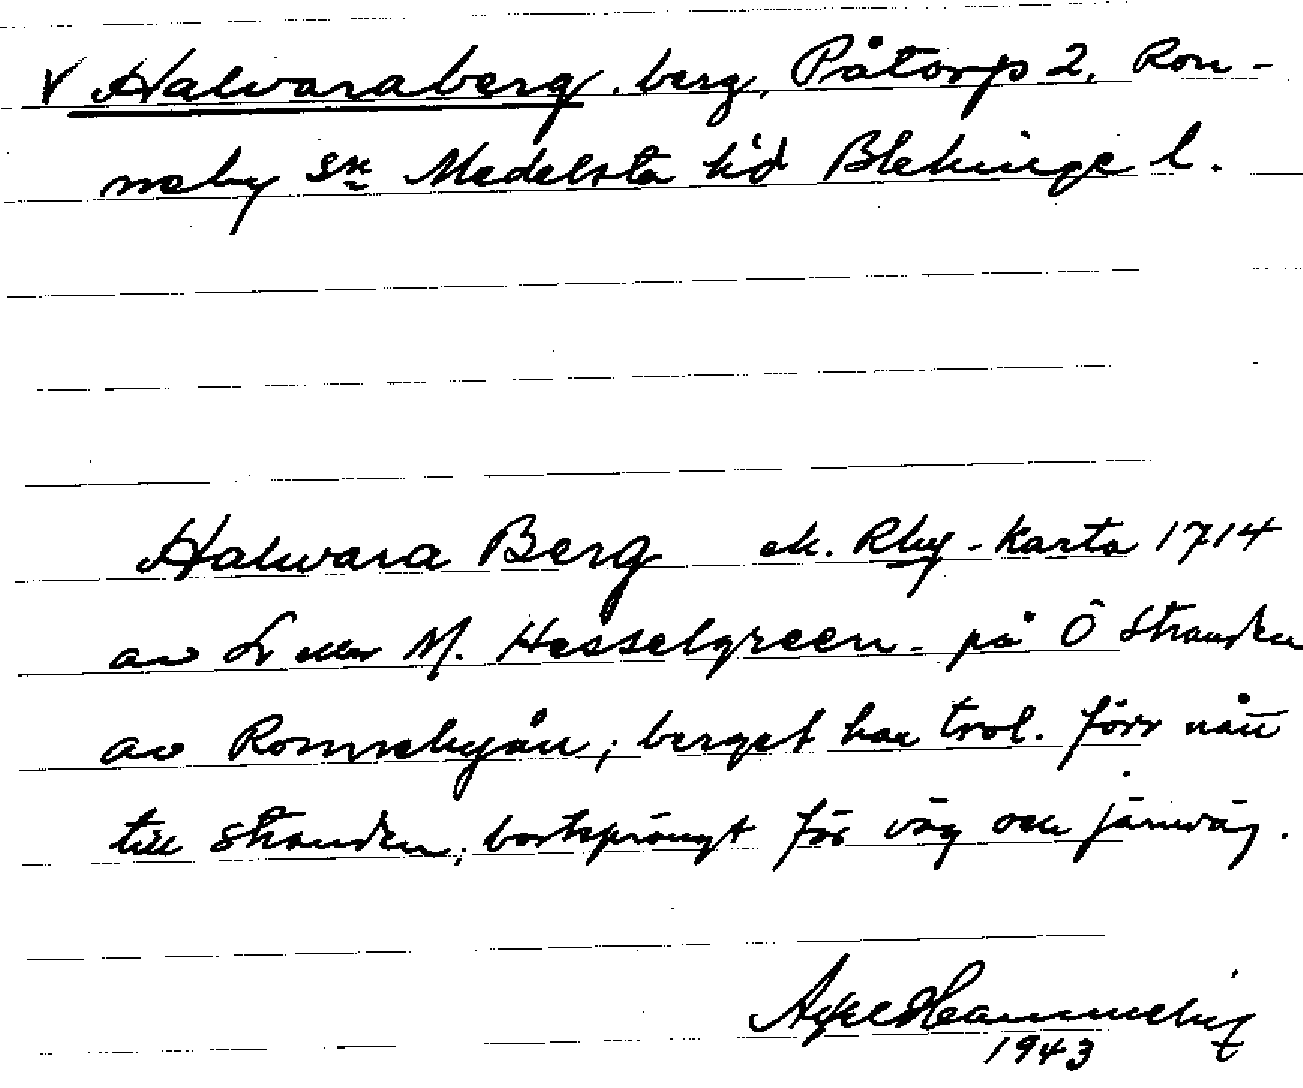 V Halvaraberg, berg, Påtorp 2, Ron-
neby sn Medelsta hd Blekinge l.
Halwara Berg ek. Rby-karta 1714
av M. Hesselgreen - på Ö stranden
av Ronnebyån; berget har trol. förr nått
till stranden, bortsprängt för väg och järnväg.
Axel Hammeby
1943